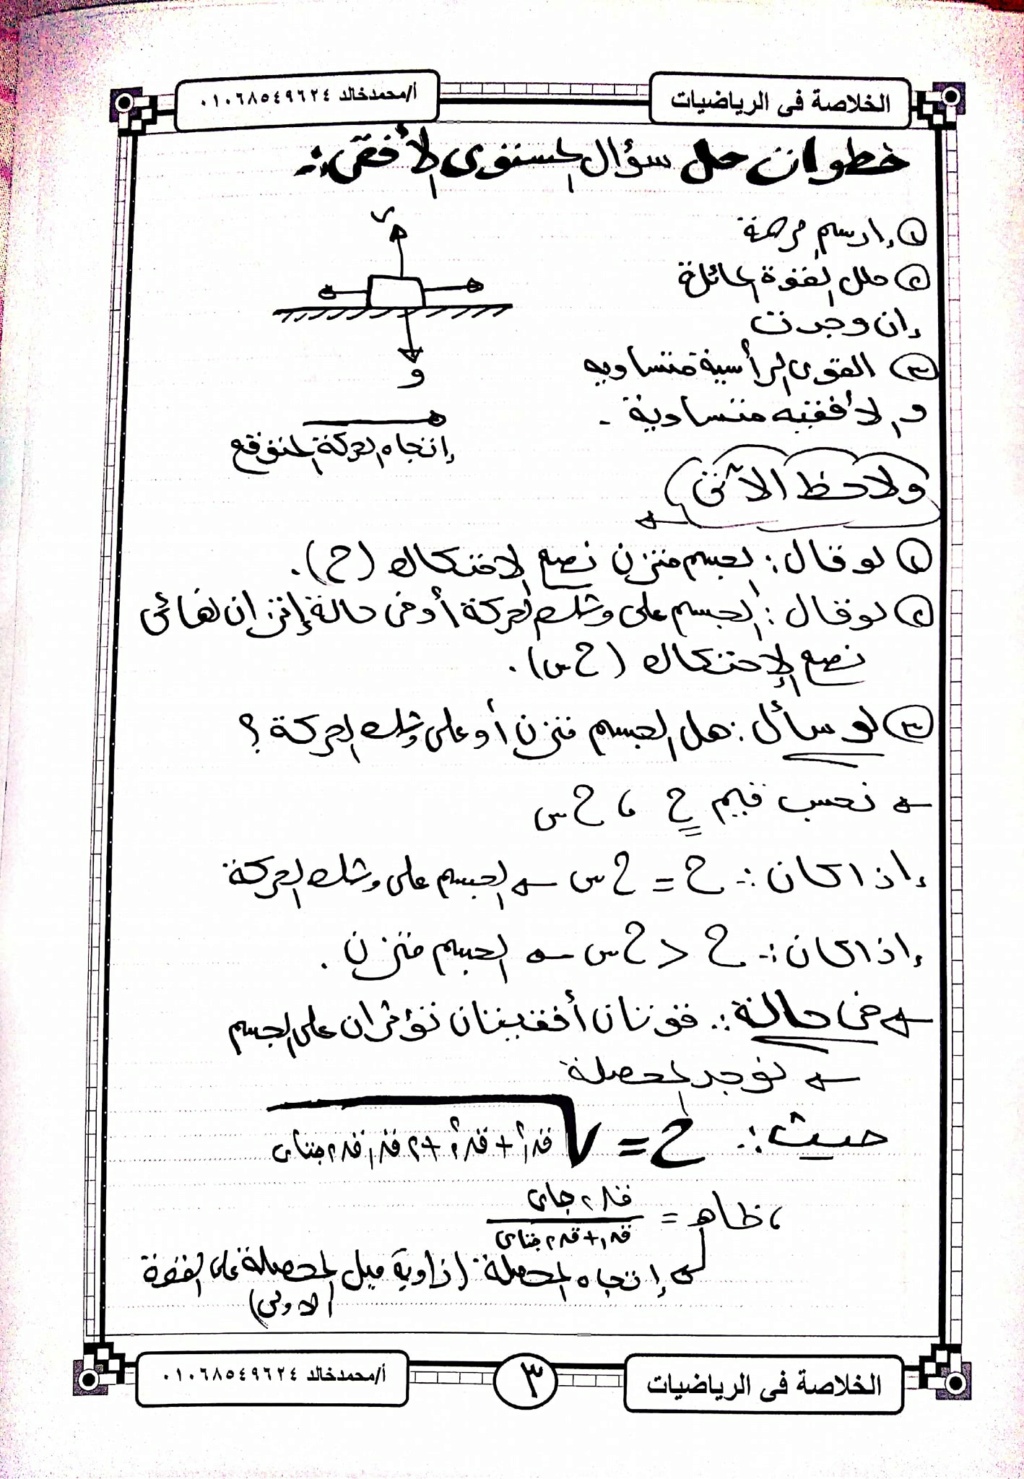 الخلاصة فى الرياضيات
أ/محمدخالد ٠١٠٦٨٥٤٩٦٢٤
خطوات حل سؤال المستوى الأفقى:-
① ارسم رسمة
② حلل القوة المائلة
إن وجدت
③ القوى الرأسية متساويه
و الأفقيه متساوية .
ر
و
إتجاه الحركة المتوقع
ولاحظ الآتى
① لو قال: الجسم متزن نضع الإحتكاك (ح).
② لو قال: الجسم على وشك الحركة أو فى حالة إتزان نهائى
نضع الإحتكاك (ح س).
③ لو سأل: هل الجسم متزن أو على وشك الحركة ؟
نحسب قيم ح ، ح س
إذا كان:- ح = ح س الجسم على وشك الحركة
إذا كان:- ح < ح س الجسم متزن .
فى حالة:. قوتان أفقيتان تؤثران على الجسم
نوجد المحصلة
حيث:- ح = √ق₁² + ق₂² + ٢ ق₁ ق₂ جتاى
، ظاهـ = ق₂ جاى / ق₁ + ق₂ جتاى
إتجاه المحصلة (زاوية ميل المحصلة على القوة
الاولى)
الخلاصة فى الرياضيات
٣
أ/محمدخالد ٠١٠٦٨٥٤٩٦٢٤